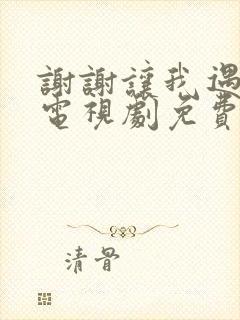 謝謝讓我遇
電視劇免費
清骨